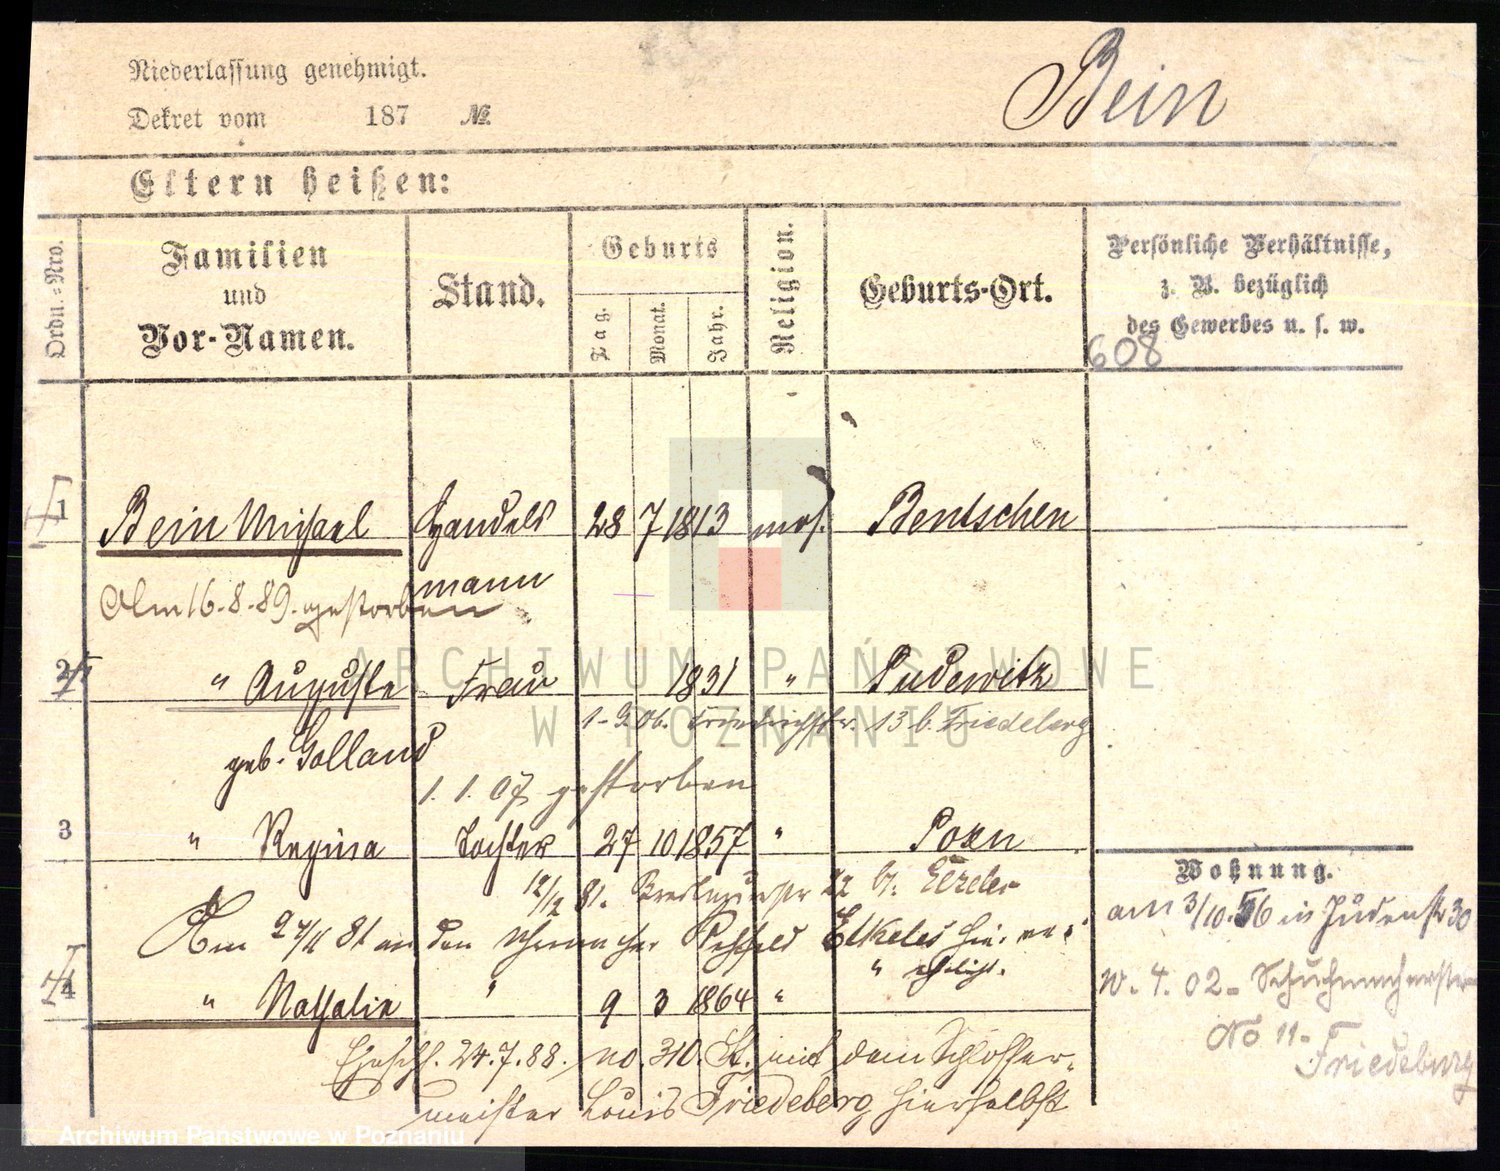 Niederlassung genehmigt.
Bein
Dekret vom 187 №
Eltern heißen:
Ordn.-Nro.
Familien und Vor-Namen.
Stand.
Geburts
Tag.
Monat.
Jahr.
Religion.
Geburts-Ort.
Persönliche Verhältnisse,
z. B. bezüglich
des Gewerbes u. s. w.
608
1 Bein Michael Handels 28 7 1813 mos. Bentschen
mann
Am 16.8.89. gestorben
ARCHIWUM PAŃSTWOWE
2 " Auguste Frau 1831 " Pudewitz
W POZNANIU
13 b. Friedeberg
geb. Golland
1. 1. 07 gestorben
3 " Regina Tochter 27 10 1857 " Posen
Wohnung.
12/12 81. Breslauerstr 22 b.
am 3/10. 56 in Judenstr 30
Am 81 an den Elkeles
ehelicht.
4 " Nathalie " 9 3 1864 "
4. 02 - Schuhmacherstr
No 11 - Friedeburg
Ehesch. 24.7.88. no. 310. St. mit dem Schlosser-
meister Louis Friedeberg hierselbst
Archiwum Państwowe w Poznaniu